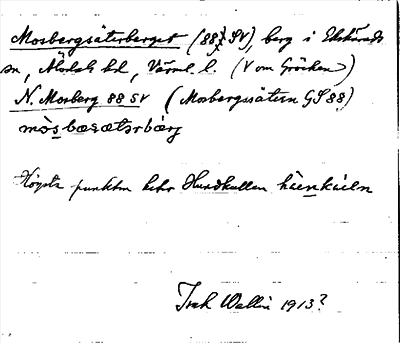 Mosbergsäterberget (88 SV), berg i Ekshärads
sn, Älvdals hd, Värml. l. (V om Gröcken)
N. Mosberg 88 SV (Mosbergssätern GS 88)
mòsbæsætsrbærj
Högsta punkten heter Hundkullen
Wallin 1913?